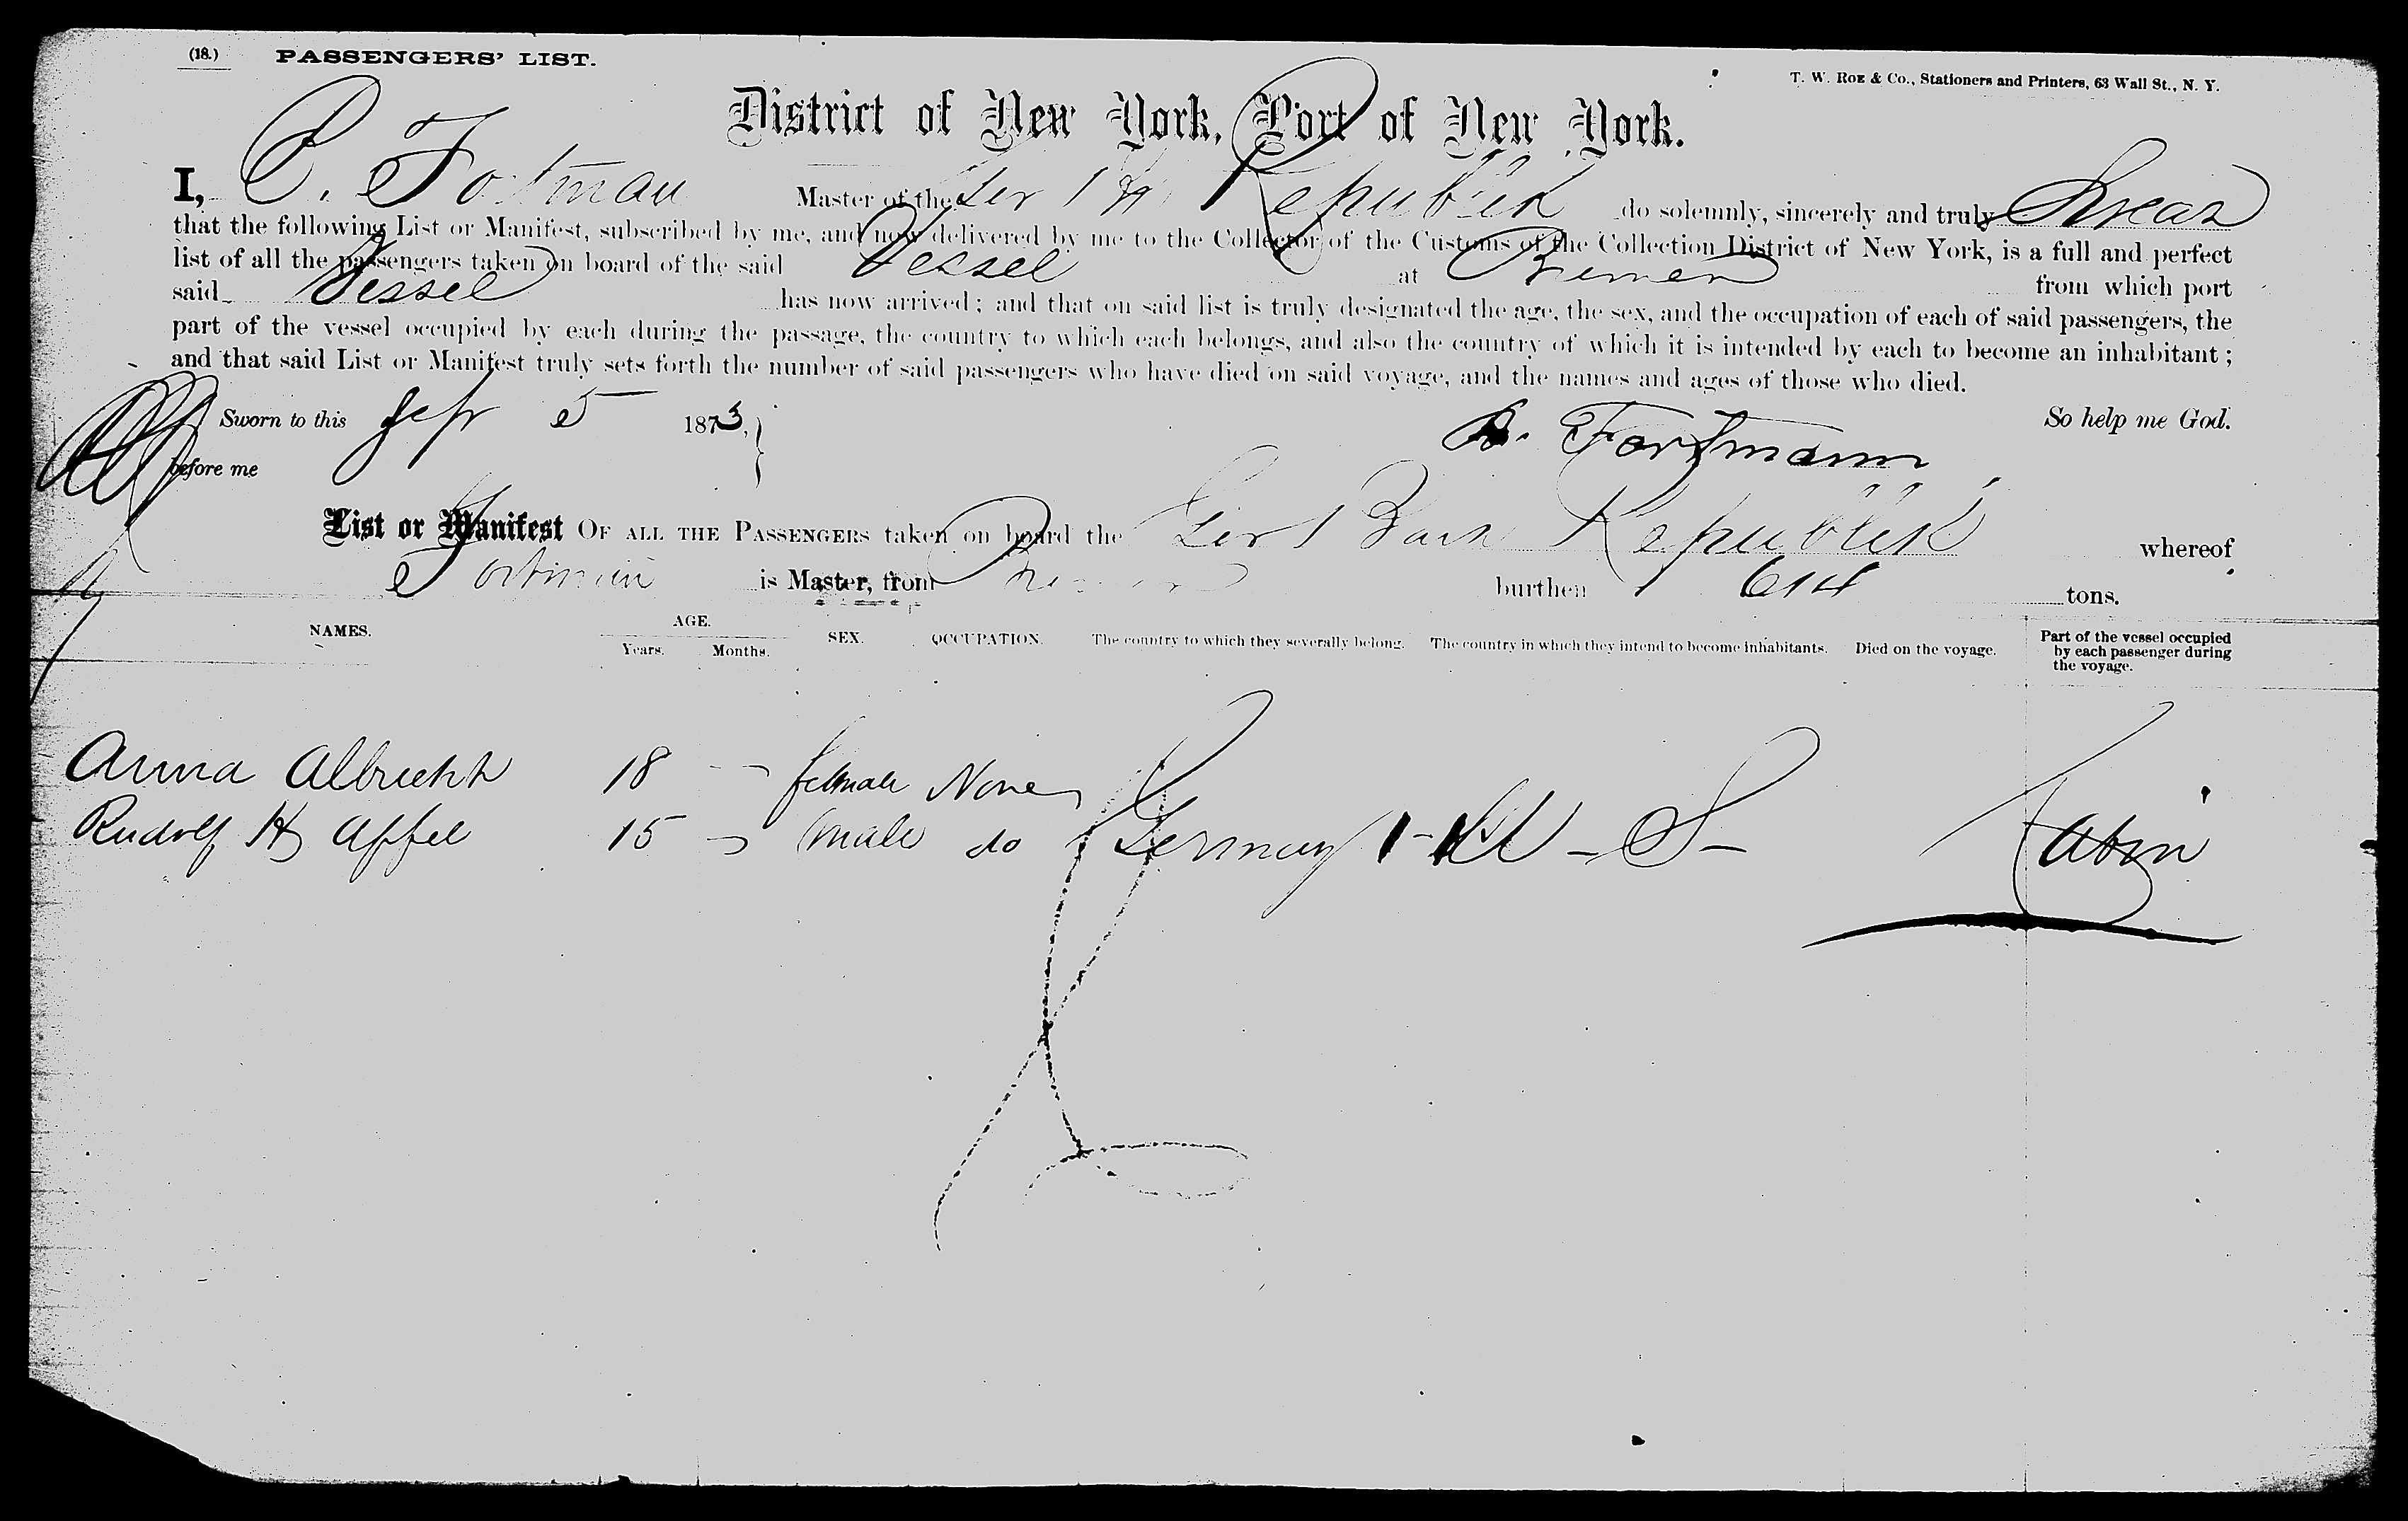 (18.) PASSENGERS' LIST.
T. W. ROE & Co., Stationers and Printers, 63 Wall St., N. Y.
District of New York, Port of New York.
I, Master of the Ger Bk Republik do solemnly, sincerely and truly Swear
that the following List or Manifest, subscribed by me, and now delivered by me to the Collector of the Customs of the Collection District of New York, is a full and perfect
list of all the passengers taken on board of the said Vessel at Bremen from which port
said Vessel has now arrived; and that on said list is truly designated the age, the sex, and the occupation of each of said passengers, the
part of the vessel occupied by each during the passage, the country to which each belongs, and also the country of which it is intended by each to become an inhabitant;
and that said List or Manifest truly sets forth the number of said passengers who have died on said voyage, and the names and ages of those who died.
Sworn to this Sep 5 1873, So help me God.
Fortmann
before me
List or Manifest OF ALL THE PASSENGERS taken on board the Ger Bark Republik whereof
Fortman is Master, from Bremen burthen 614 tons.
NAMES. AGE. Years. Months. SEX. OCCUPATION. The country to which they severally belong. The country in which they intend to become inhabitants. Died on the voyage. Part of the vessel occupied by each passenger during the voyage.
Anna Albrecht 18 — female None
Rudolf H Apfel 15 — male do Germany U - S - Cabin